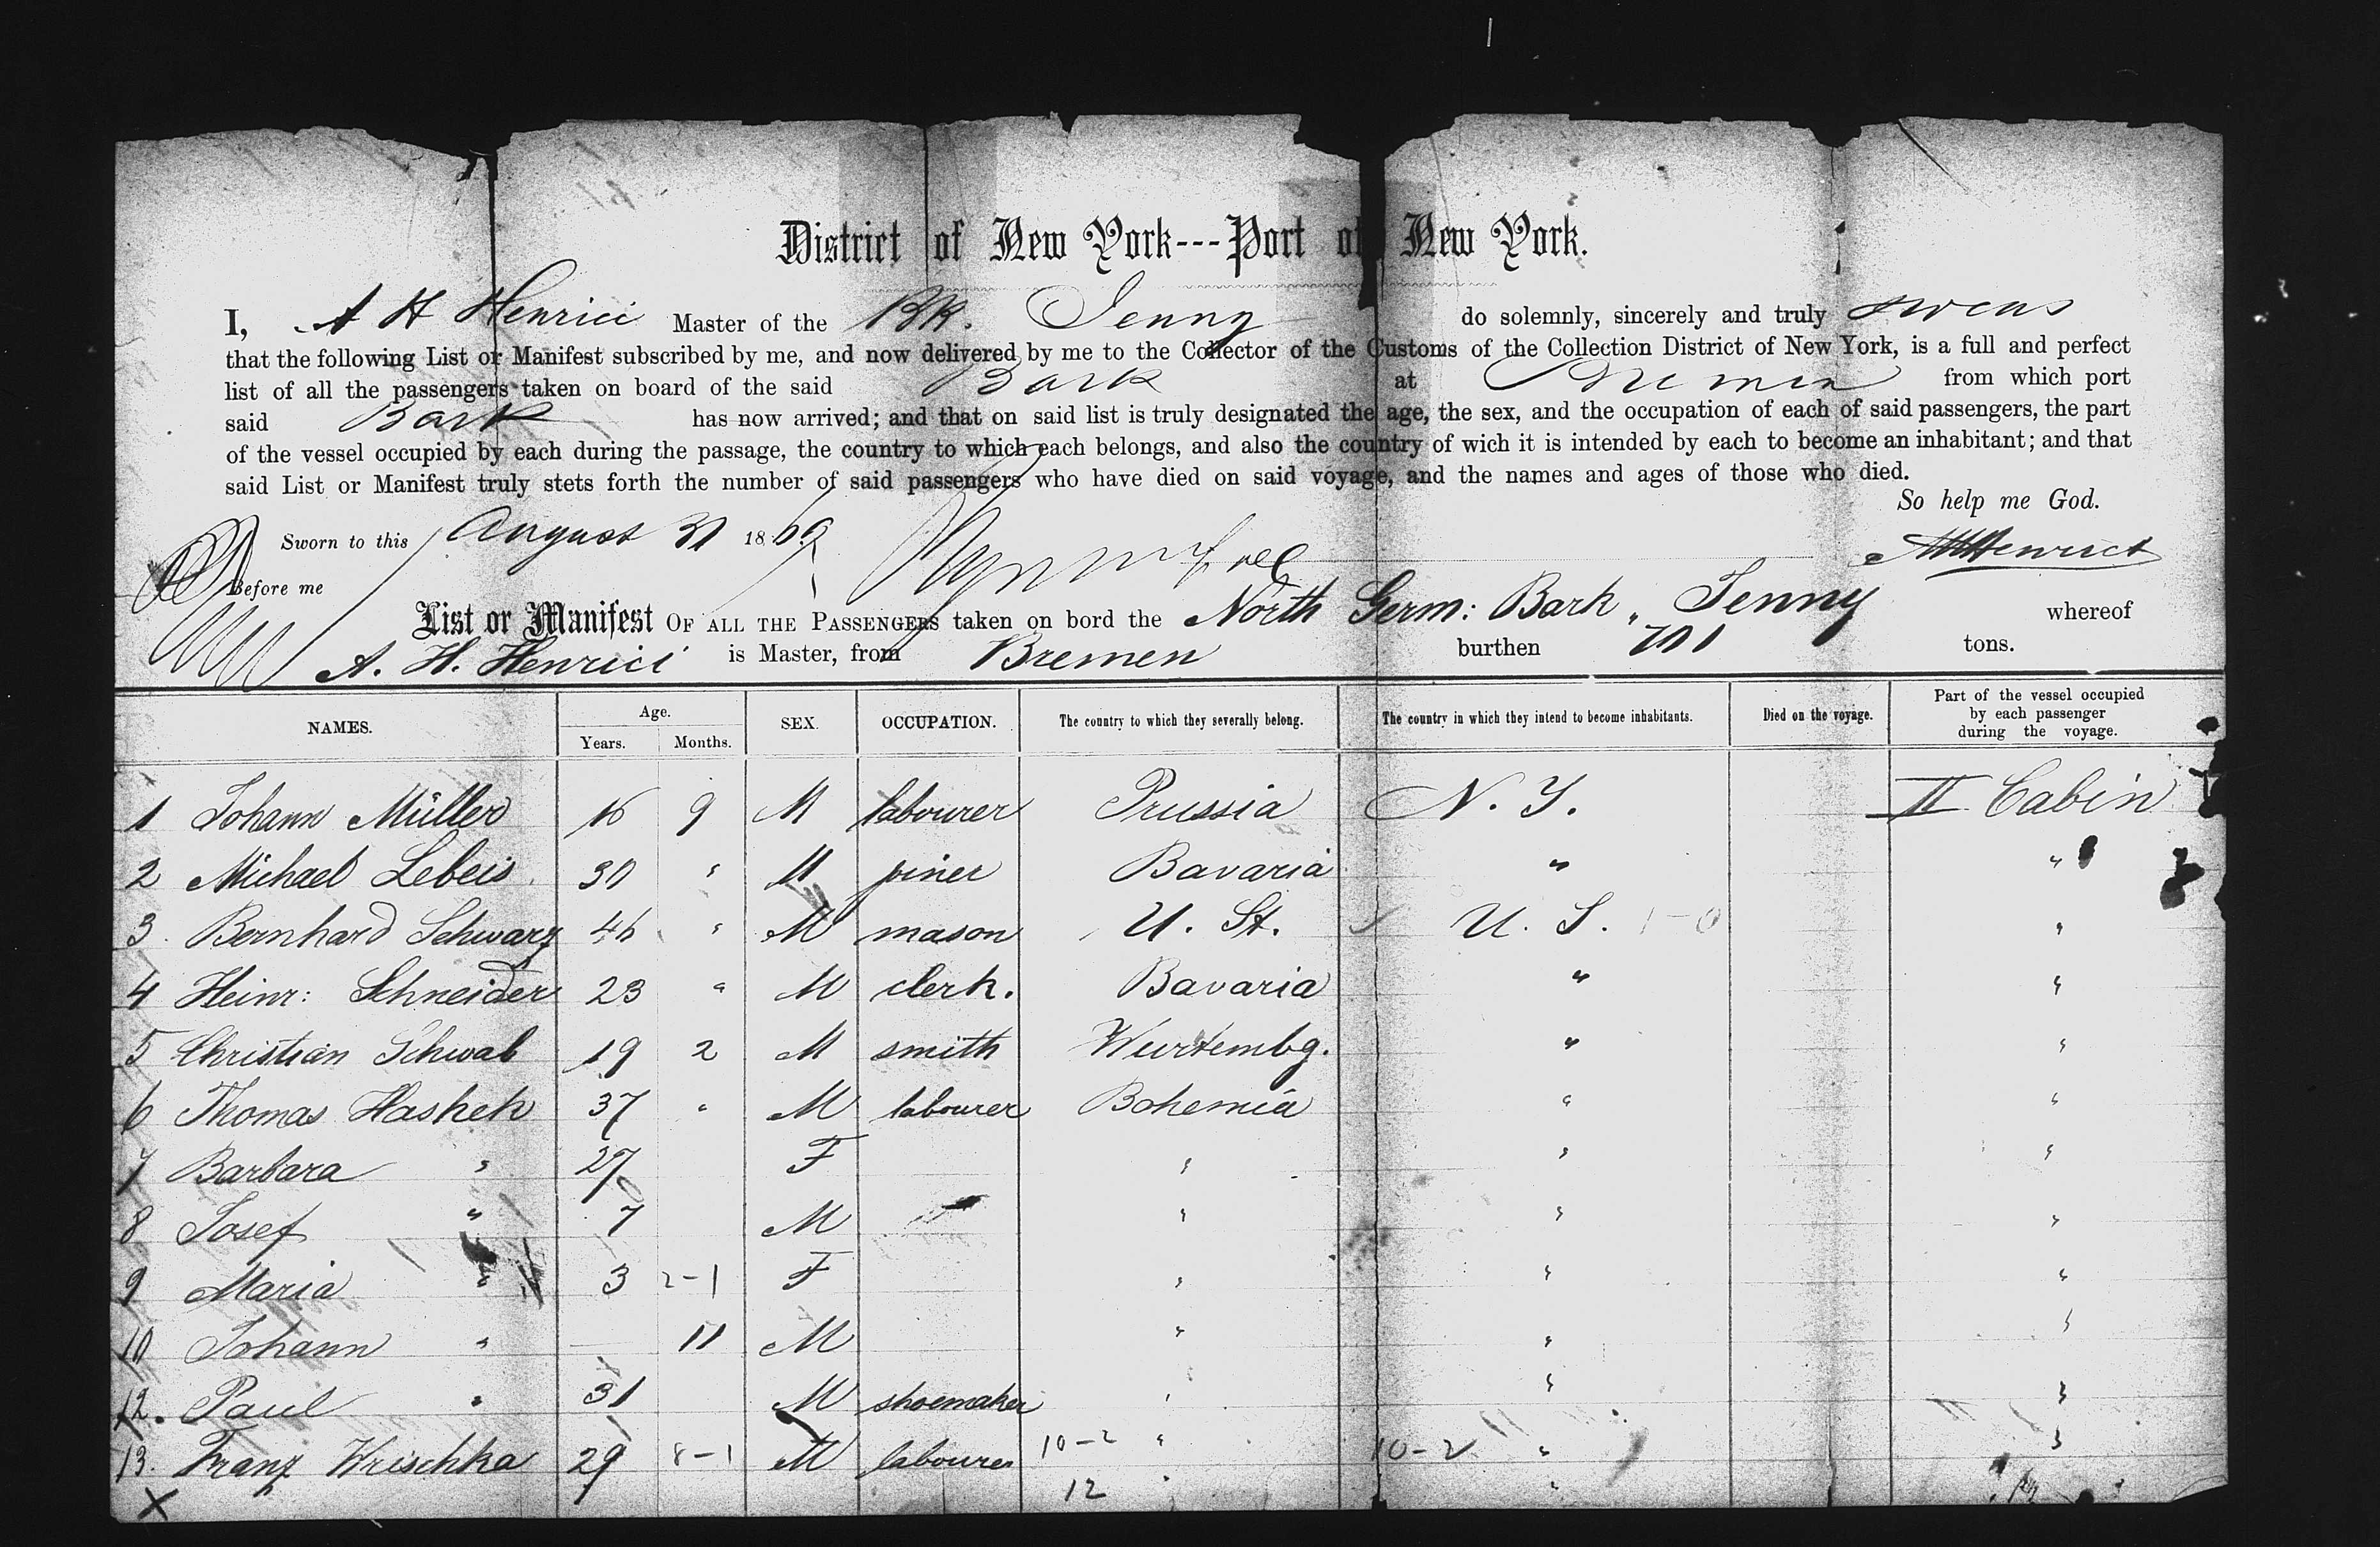 District of New York---Port of New York.
I, A H Henrici Master of the Bk. Jenny do solemnly, sincerely and truly swear
that the following List or Manifest subscribed by me, and now delivered by me to the Collector of the Customs of the Collection District of New York, is a full and perfect
list of all the passengers taken on board of the said Bark at Bremen from which port
said Bark has now arrived; and that on said list is truly designated the age, the sex, and the occupation of each of said passengers, the part
of the vessel occupied by each during the passage, the country to which each belongs, and also the country of wich it is intended by each to become an inhabitant; and that
said List or Manifest truly stets forth the number of said passengers who have died on said voyage, and the names and ages of those who died.
So help me God.
Sworn to this August 31 1869 AHHenrici
Before me
List or Manifest OF ALL THE PASSENGERS taken on bord the North Germ: Bark „ Jenny whereof
A. H. Henrici is Master, from Bremen burthen 701 tons.
NAMES. Age. Years. Months. SEX. OCCUPATION. The country to which they severally belong. The country in which they intend to become inhabitants. Died on the voyage. Part of the vessel occupied by each passenger during the voyage.
1 Johann Müller 16 9 M labourer Prussia N. Y. II Cabin
2 Michael Lebeis 30 " M joiner Bavaria " "
3. Bernhard Schwarz 46 " M mason U. St. U. S. 1-0 "
4 Heinr: Schneider 23 " M clerk. Bavaria " "
5 Christian Schwab 19 2 M smith Wurtembg. " "
6 Thomas Hashek 37 " M labourer Bohemia " "
7 Barbara " 27 F " " "
8 Josef " 7 M " " "
9 Maria " 3 2-1 F " " "
10 Johann " 11 M " " "
12. Paul " 31 M shoemaker " " "
13. Franz Wrischka 29 8-1 M labourer 10-2 " 10-2 " "
X 12 " "